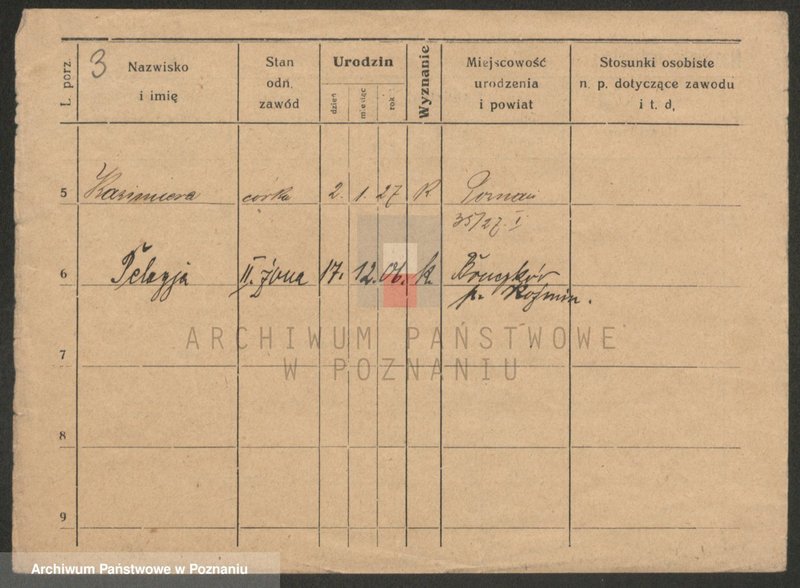 3
L. porz.
Nazwisko
i imię
Stan
odn.
zawód
Urodzin
dzień
miesiąc
rok
Wyznanie
Miejscowość
urodzenia
i powiat
Stosunki osobiste
n. p. dotyczące zawodu
i t. d.
5 Kazimiera córka 2. 1. 27. K Poznań
35/27. I
6 Pelagja II. żona 17. 12. 06. k.
p. Koźmin.
7
8
9
ARCHIWUM PAŃSTWOWE
W POZNANIU
Archiwum Państwowe w Poznaniu